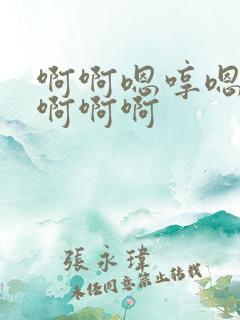 啊啊嗯哼嗯
啊啊啊
張永瑋
未經同意禁止轉載